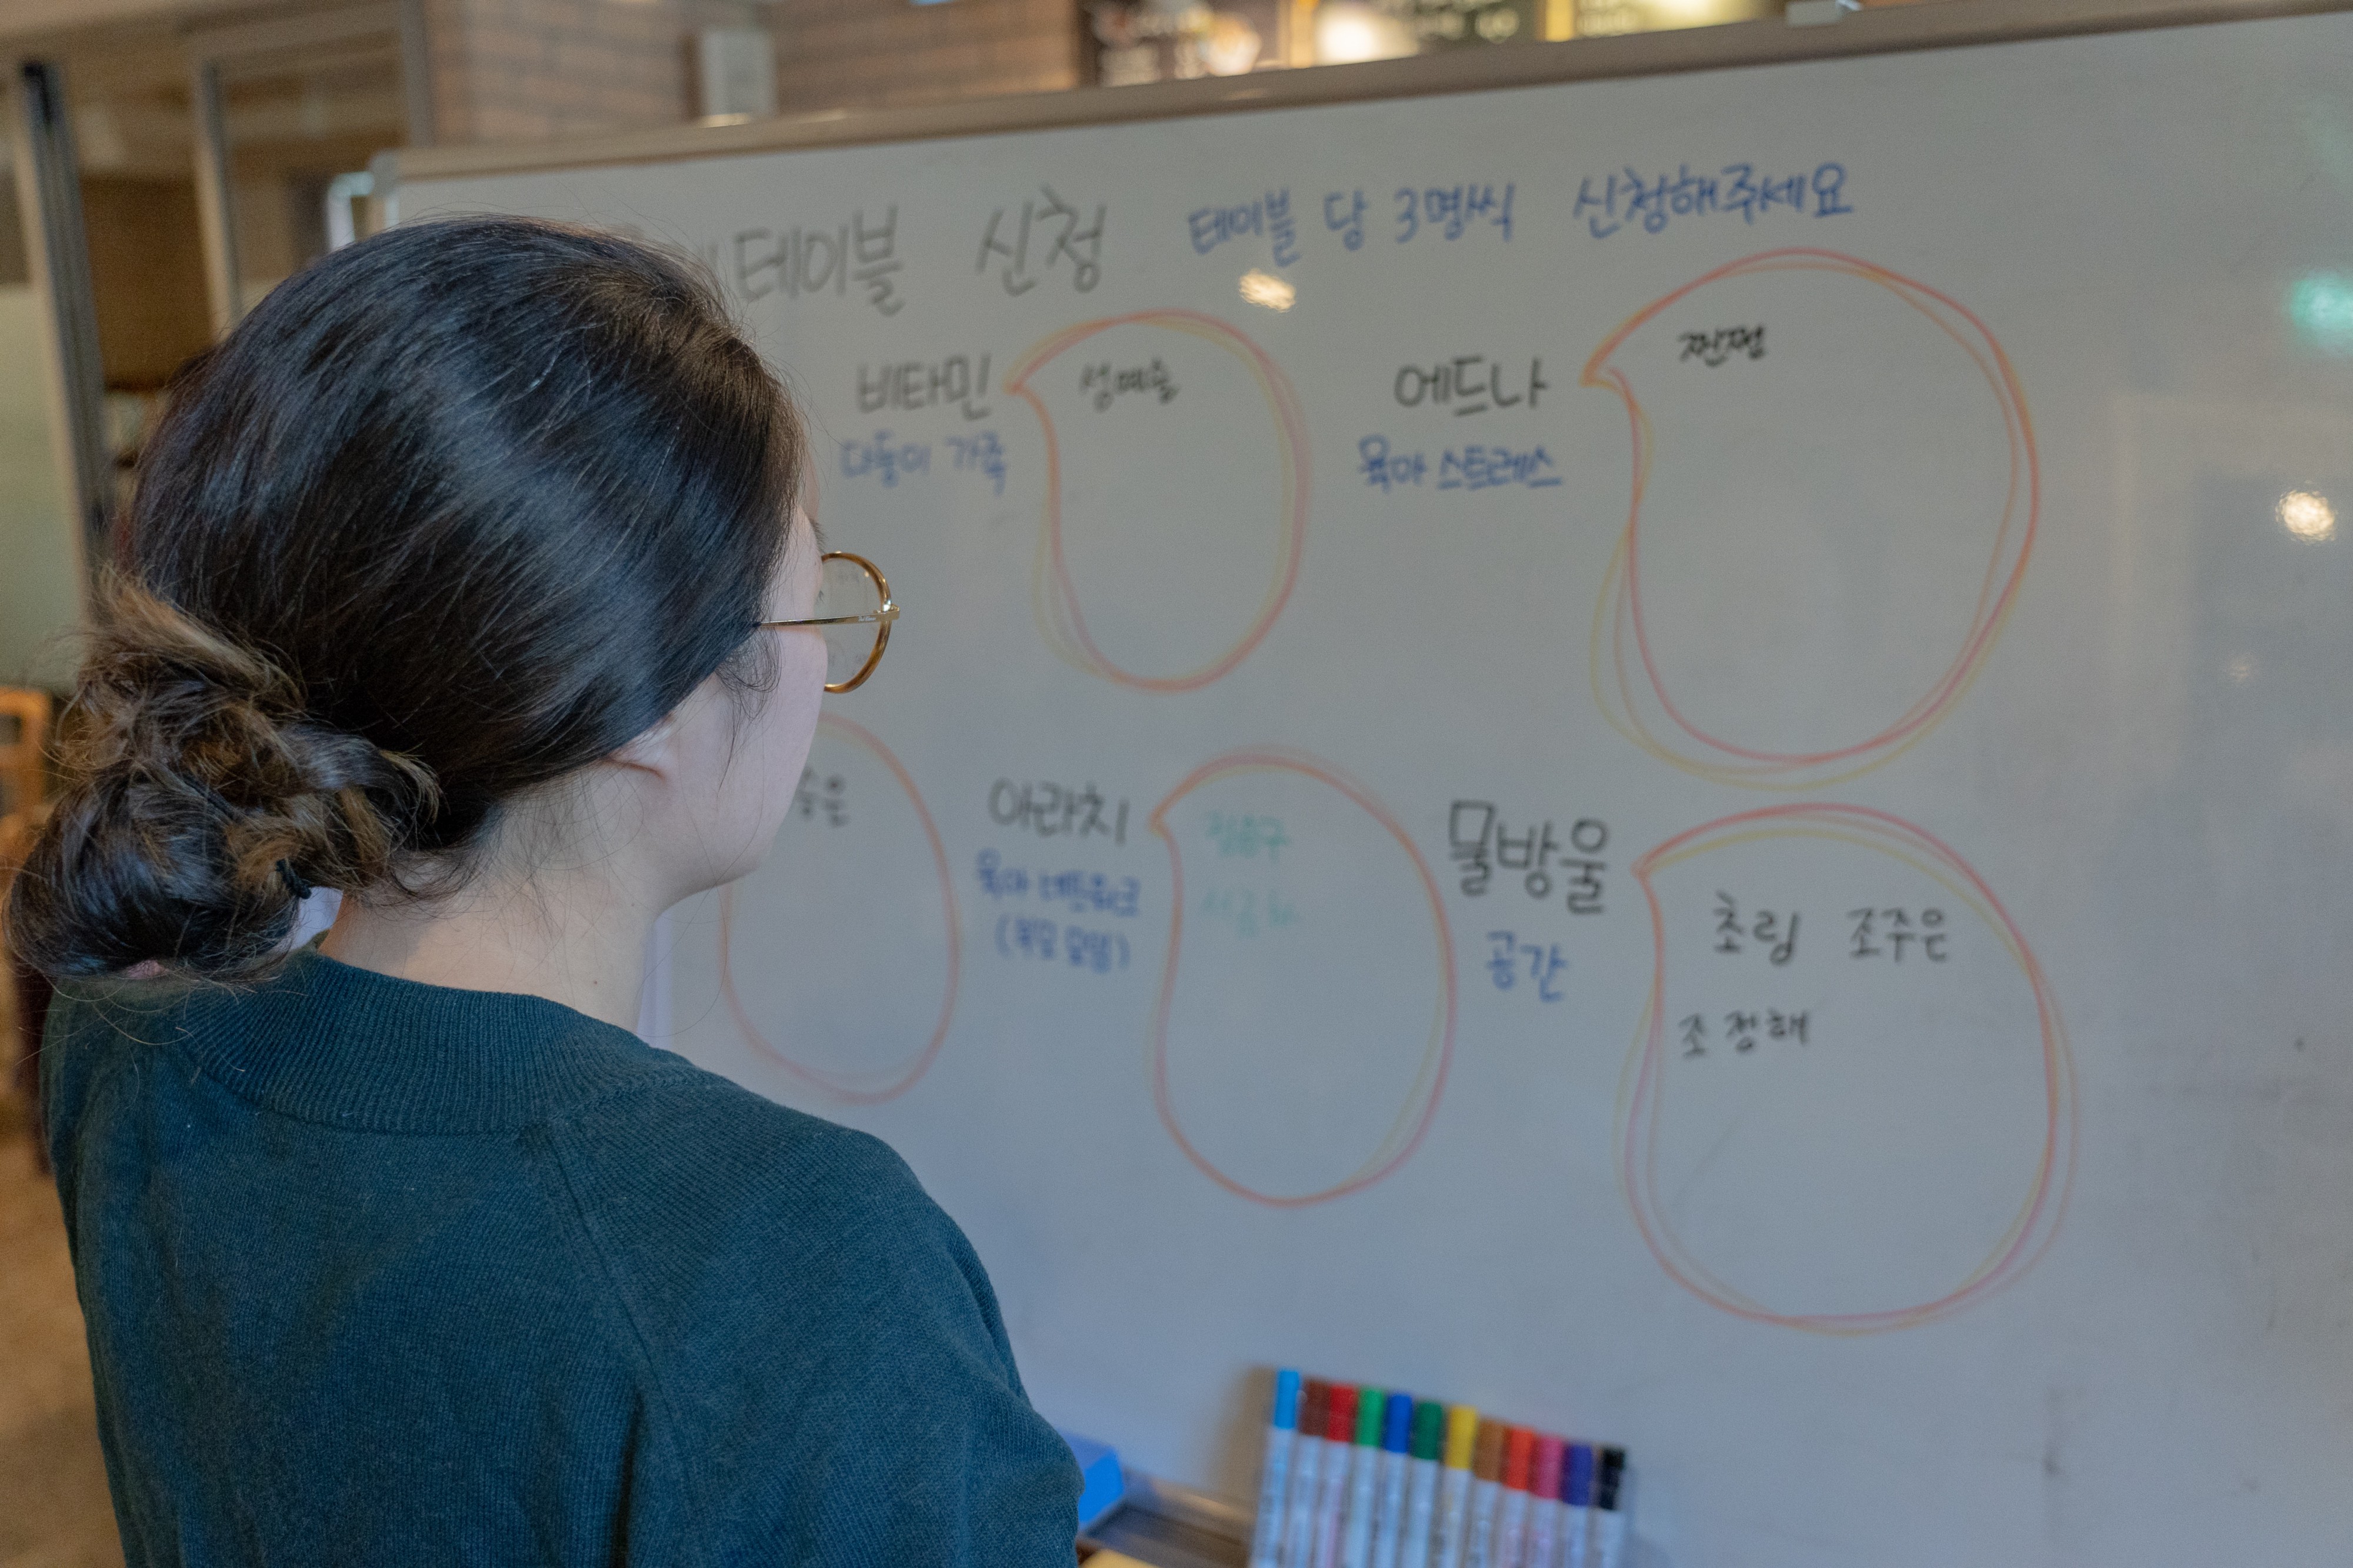 테이블 신청 테이블 당 3명씩 신청해주세요
비타민 성예슬
다둥이 가족
에드나 찐쩜
육아 스트레스
아라치
육아 네트워크
(부모 모임)
물방울
공간
초림 조주은
조정해